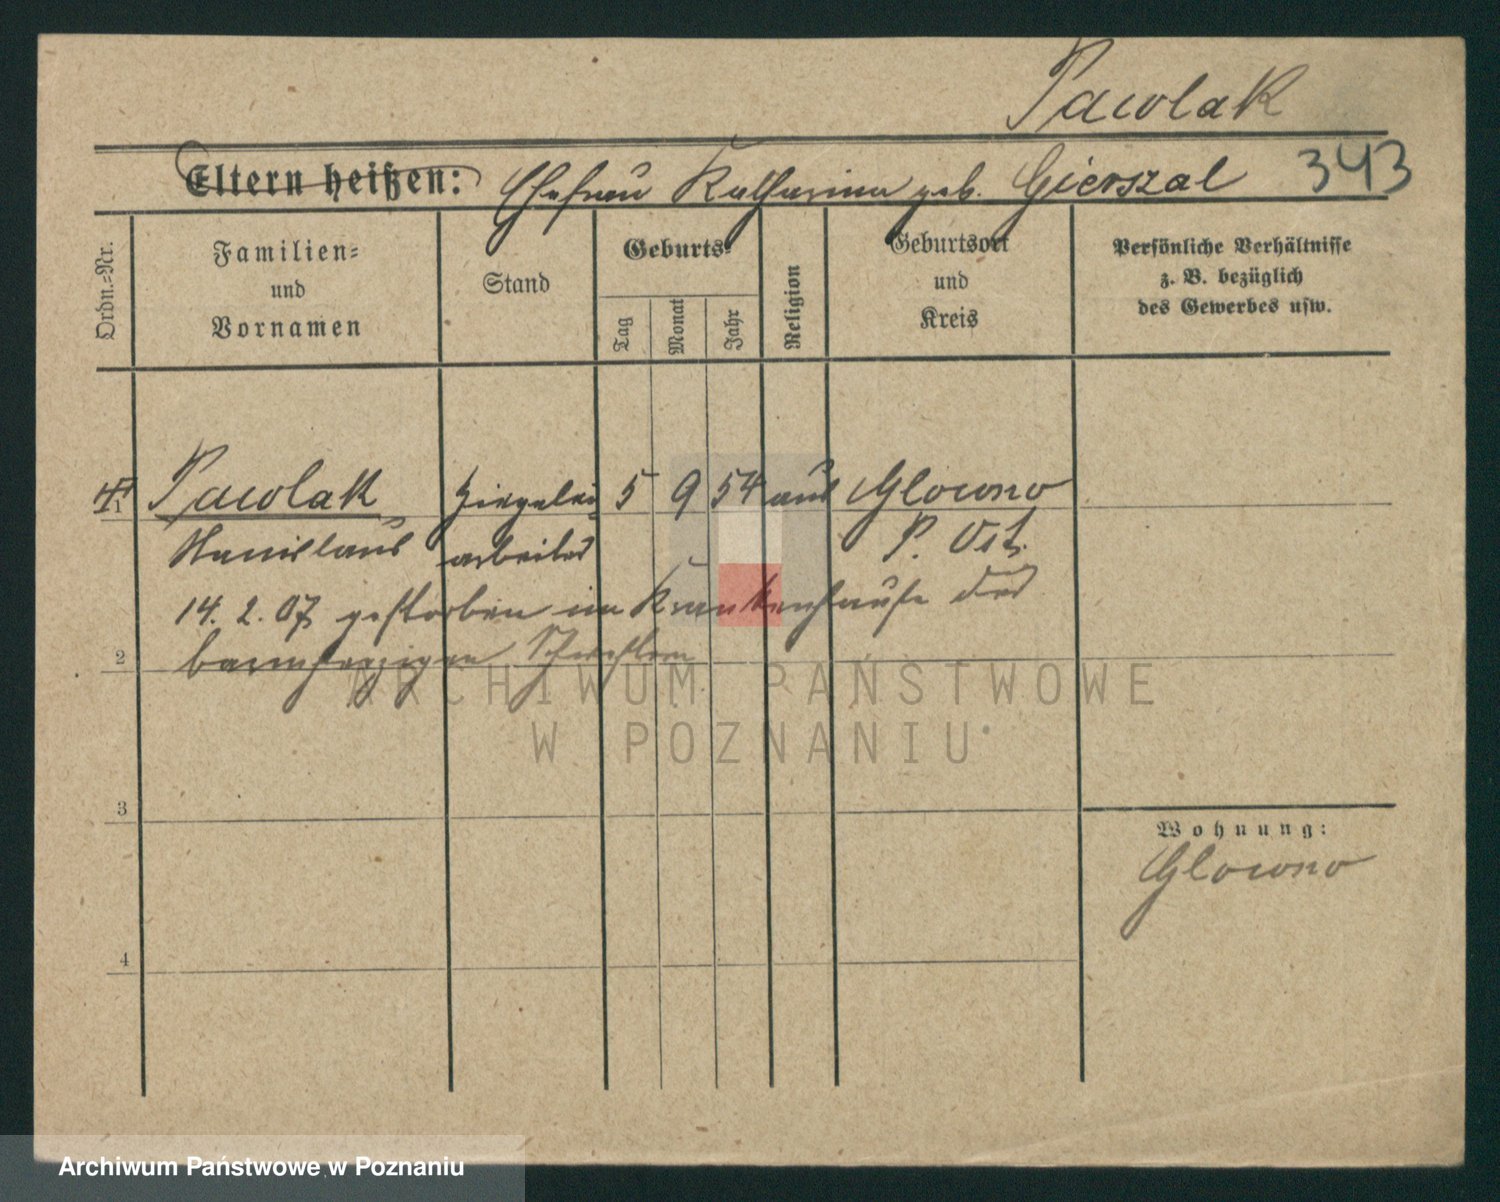 Pawlak
Eltern heißen: Ehefrau Katharina geb. Gierszal 343
Ordn.-Nr.
Familien-
und
Vornamen
Stand
Geburts-
Tag
Monat
Jahr
Religion
Geburtsort
und
Kreis
Persönliche Verhältnisse
z. B. bezüglich
des Gewerbes usw.
1 Pawlak Ziegelei 5 9 54 aus Glowno
Stanislaus arbeiter P. Ost.
14. 2. 07 gestorben im Krankenhause der
2 barmherzigen Schwestern
ARCHIWUM PAŃSTWOWE
W POZNANIU
3
Wohnung:
Glowno
4
Archiwum Państwowe w Poznaniu